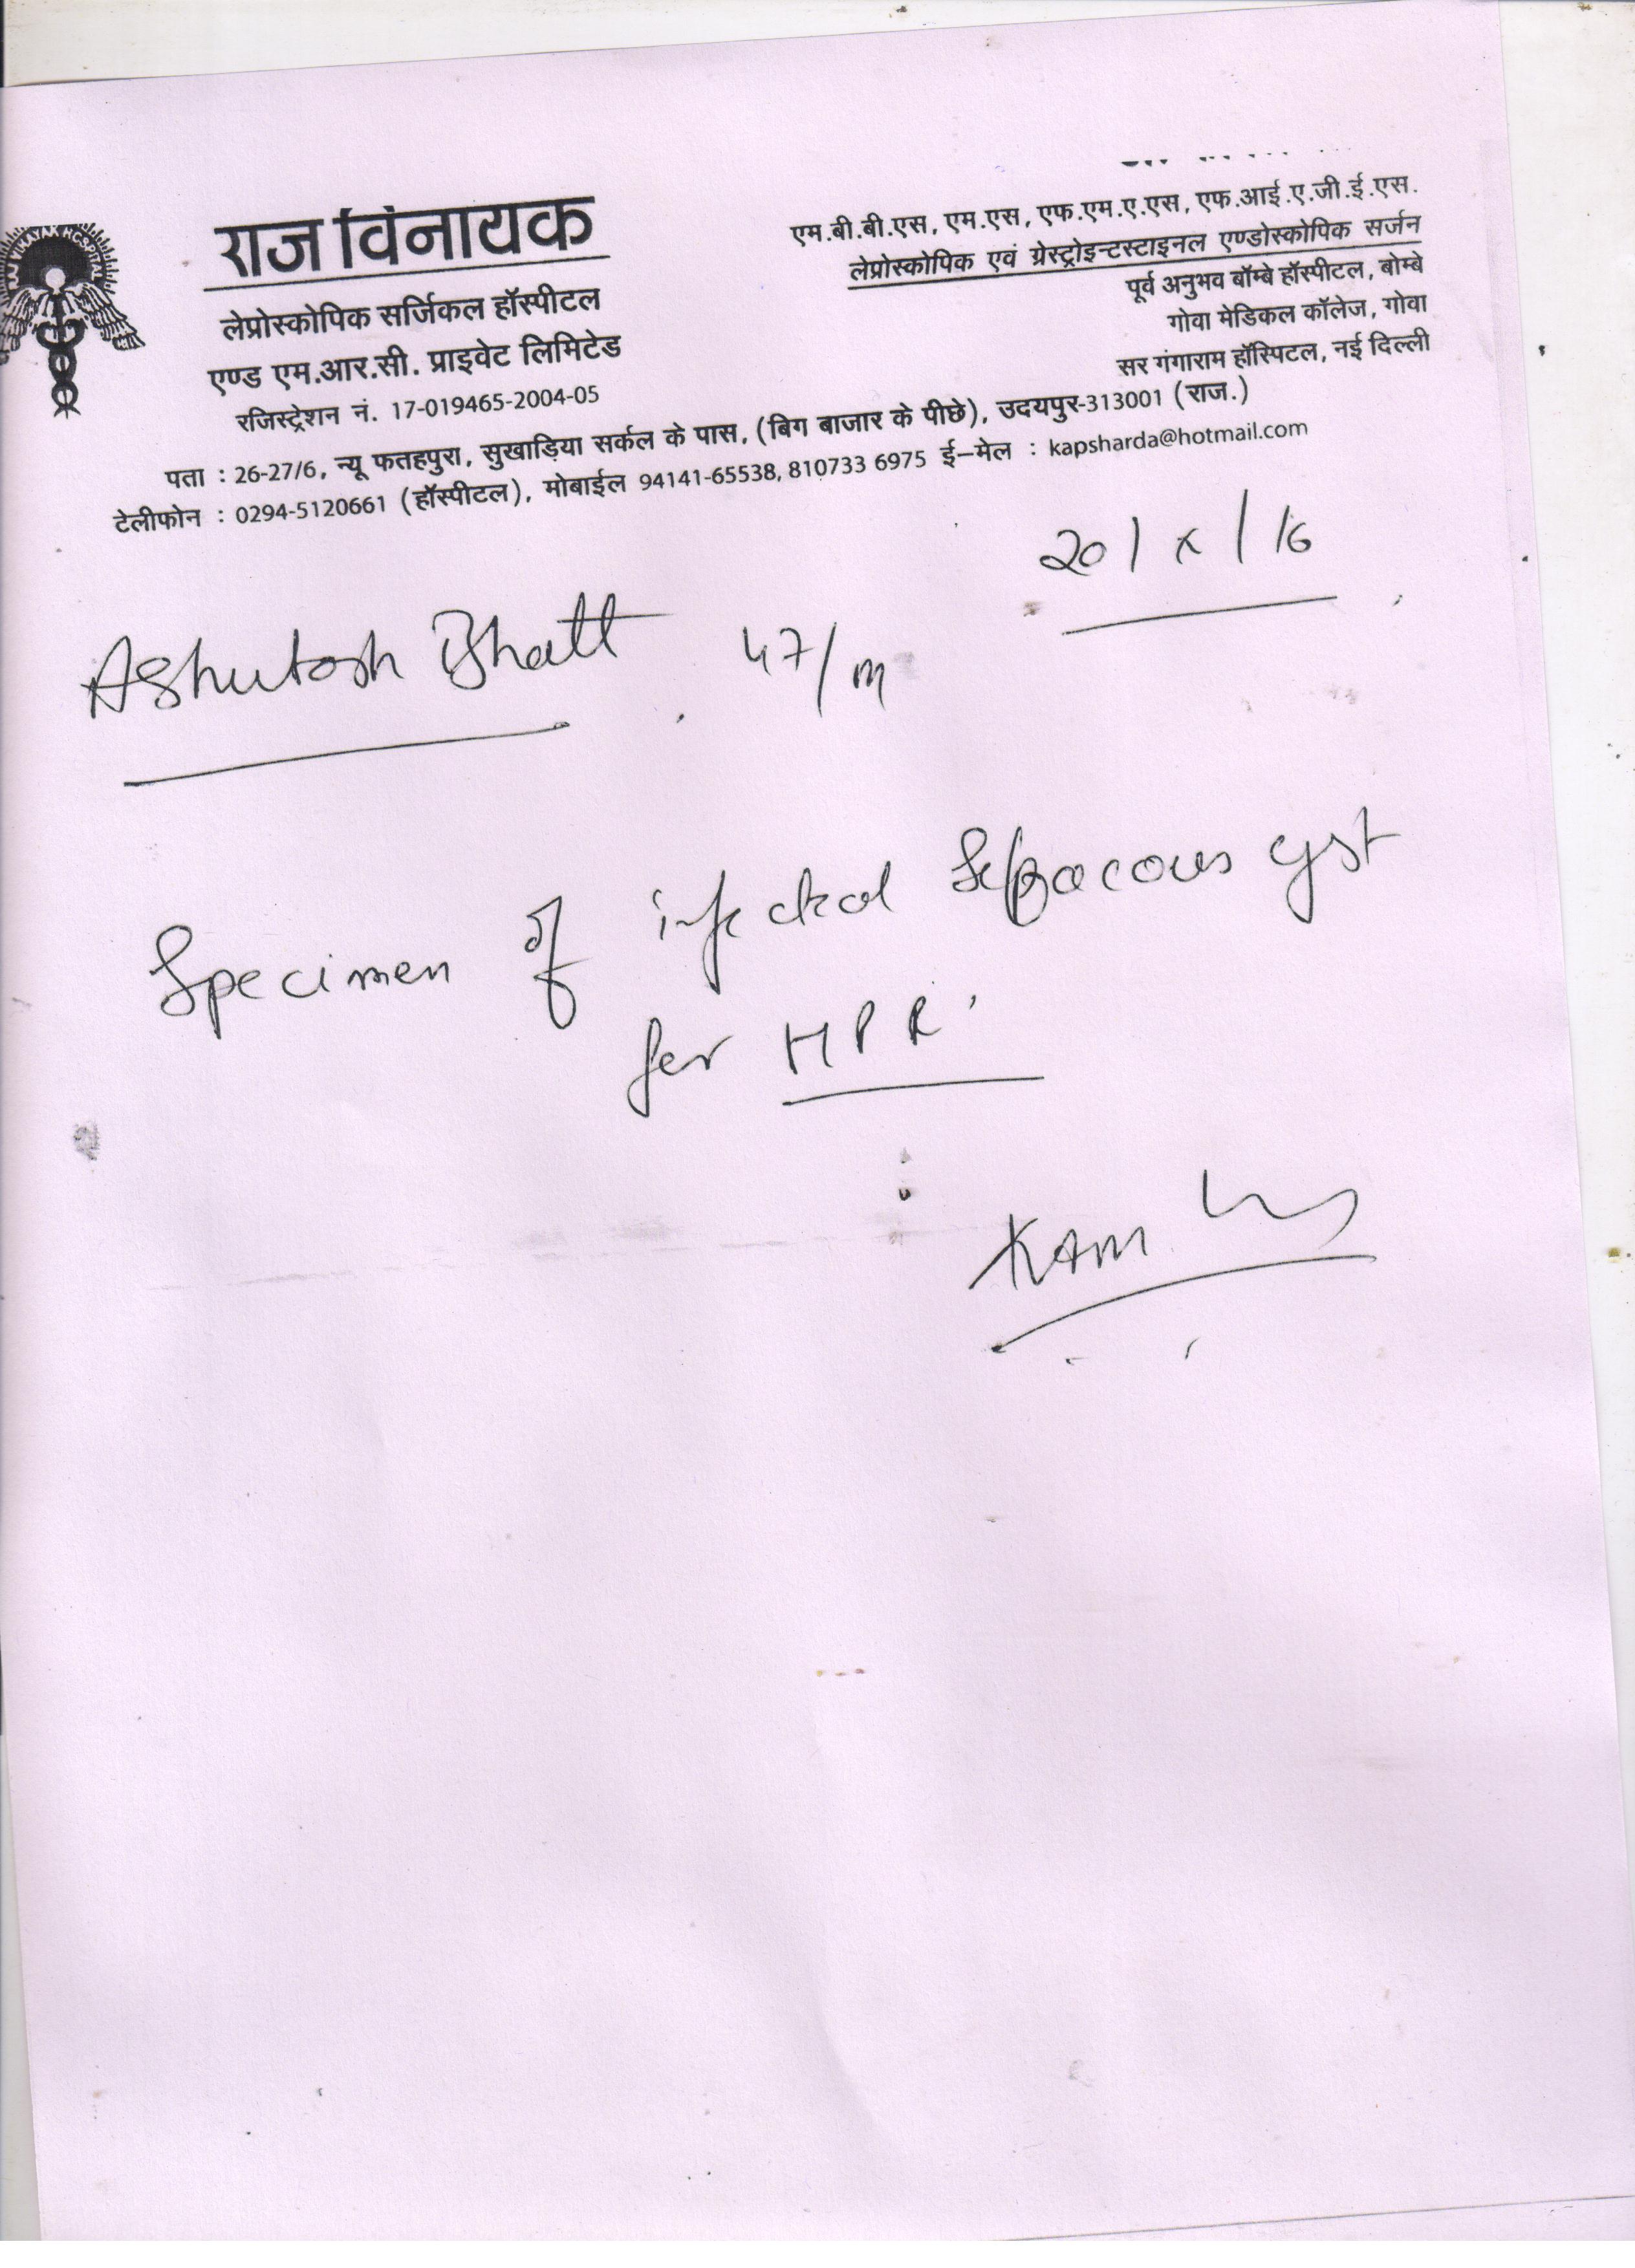 राज विनायक
लेप्रोस्कोपिक सर्जिकल हॉस्पीटल
एण्ड एम.आर.सी. प्राइवेट लिमिटेड
रजिस्ट्रेशन नं. 17-019465-2004-05
एम.बी.बी.एस, एम.एस, एफ.एम.ए.एस, एफ.आई.ए.जी.ई.एस.
लेप्रोस्कोपिक एवं ग्रेस्ट्रोइन्टस्टाइनल एण्डोस्कोपिक सर्जन
पूर्व अनुभव बॉम्बे हॉस्पीटल, बोम्बे
गोवा मेडिकल कॉलेज, गोवा
सर गंगाराम हॉस्पिटल, नई दिल्ली
पता : 26-27/6, न्यू फतहपुरा, सुखाड़िया सर्कल के पास, (बिग बाजार के पीछे), उदयपुर-313001 (राज.)
टेलीफोन : 0294-5120661 (हॉस्पीटल), मोबाईल 94141-65538, 810733 6975 ई–मेल : kapsharda@hotmail.com
20/x/16
Ashutosh Bhatt 47/m
Specimen of infected Sebaceous cyst
for HPR.